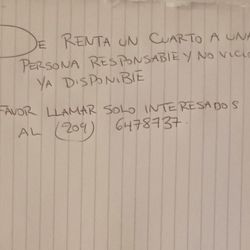 DE RENTA UN CUARTO A UNA
PERSONA RESPONSABLE Y NO VICIO
YA DISPONIBLE
FAVOR LLAMAR SOLO INTERESADOS
AL (209) 6478737.